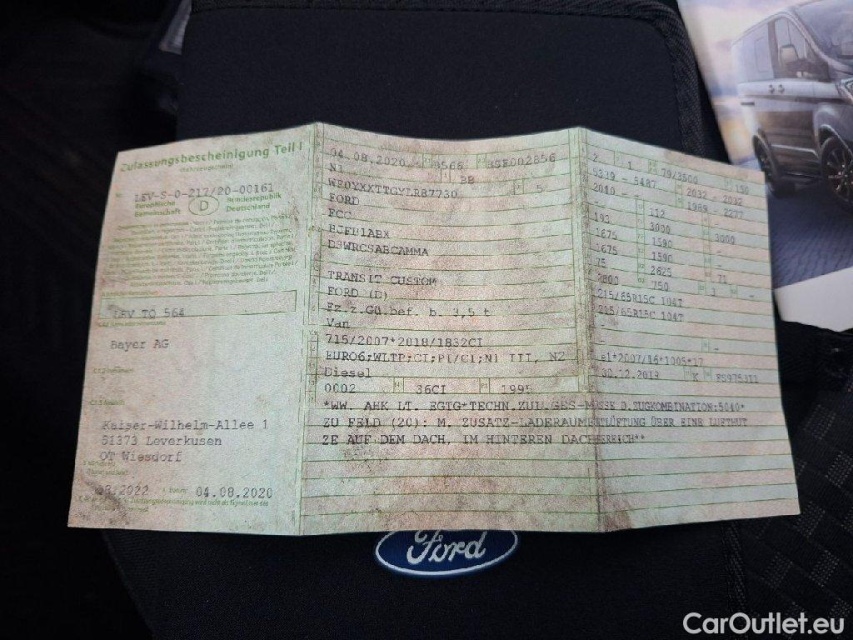 Zulassungsbescheinigung Teil I
LEV-S-0-217/20-00161
Europäische Gemeinschaft
D
Bundesrepublik Deutschland
LEV TO 564
Bayer AG
Kaiser-Wilhelm-Allee 1
51373 Leverkusen
OT Wiesdorf
08/2022
04.08.2020
04.08.2020
8566
N1
BB
5
FORD
FCC
TRANSIT CUSTOM
FORD (D)
Fz.z.Gü.bef. b. 3,5 t
Van
715/2007*2018/1832CI
EURO6;WLTP;CI;PI/CI;N1 III, N2
Diesel
0002
36CI
1995
*WW. AHK LT. EGTG*TECHN.ZUL.GES-MASSE D.ZUGKOMBINATION:5040*
ZU FELD (20): M. ZUSATZ-LADERAUMENTLÜFTUNG ÜBER EINE LUFTHUT
ZE AUF DEM DACH, IM HINTEREN DACHBEREICH**
2
1
79/3500
5339 - 5487
2032 - 2032
193
112
3000
3000
1675
1590
1675
1590
75
2625
71
2800
750
215/65R15C 104T
215/65R15C 104T
K
Ford
CarOutlet.eu